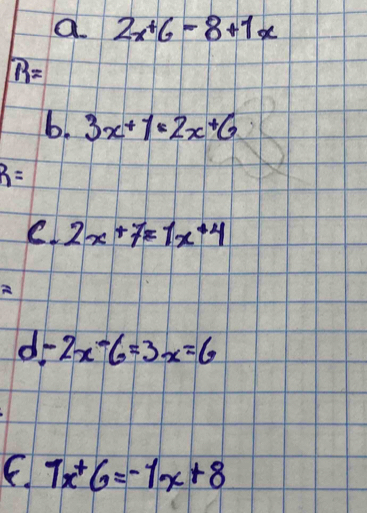 a. 2x+6-8+1x
R=
b. 3x+1=2x+6
R=
c. 2x+7=1x+4
=
d. -2x-6=3x=6
f. 1x+6=-1x+8